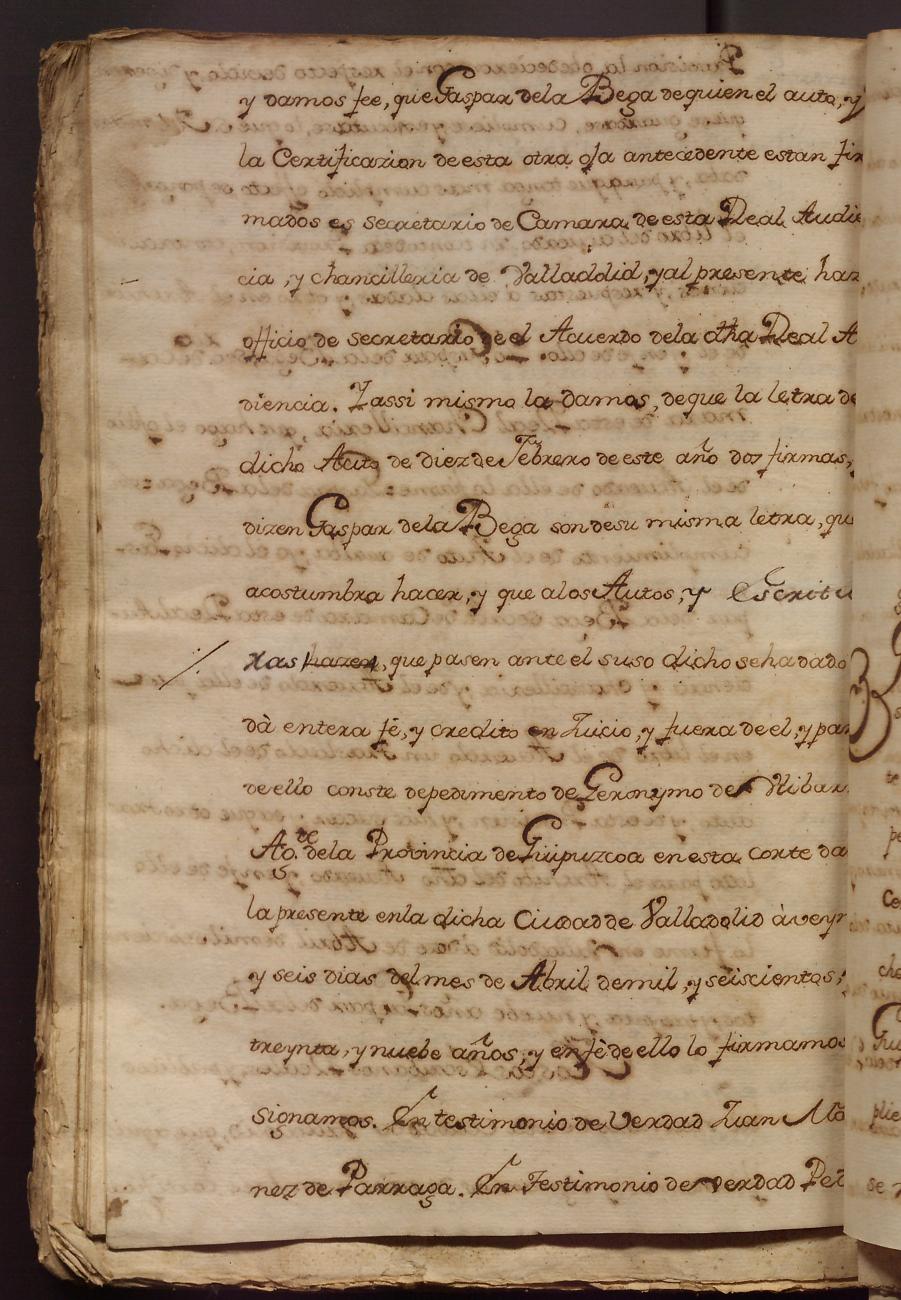 y damos fee, que Gaspar dela Bega de quien el auto, y
la Certificazion de esta otra oja antecedente estan fir
mados es secretario de Camara de esta Real Audie
cia, y chancilleria de Valladdid, y al presente haz
officio de secretario de el Acuerdo dela dha Real A
diencia. Y assi mismo la damos, de que la letra de
dicho Auto de diez de Febrero de este año dos firmas,
dizen Gaspar dela Bega son desu misma letra, qu
acostumbra hacer, y que alos Autos, y Escritu
ras hazen, que pasen ante él suso dicho seha dado
dà entera fè, y credito en Iuicio, y fuera de el, y par
de ello conste de pedimento de Geronymo de
Ag.te dela Provincia de Guipuzcoa en esta corte da
la presente enla dicha Ciudad de Valladolid à veyn
y seis dias del mes de Abril de mil, y seiscientos,
treynta, y nuebe años, y en fè de ello lo firmamos
signamos. En testimonio de Verdad Iuan
nez de Parraga. En Testimonio de verdad Ped